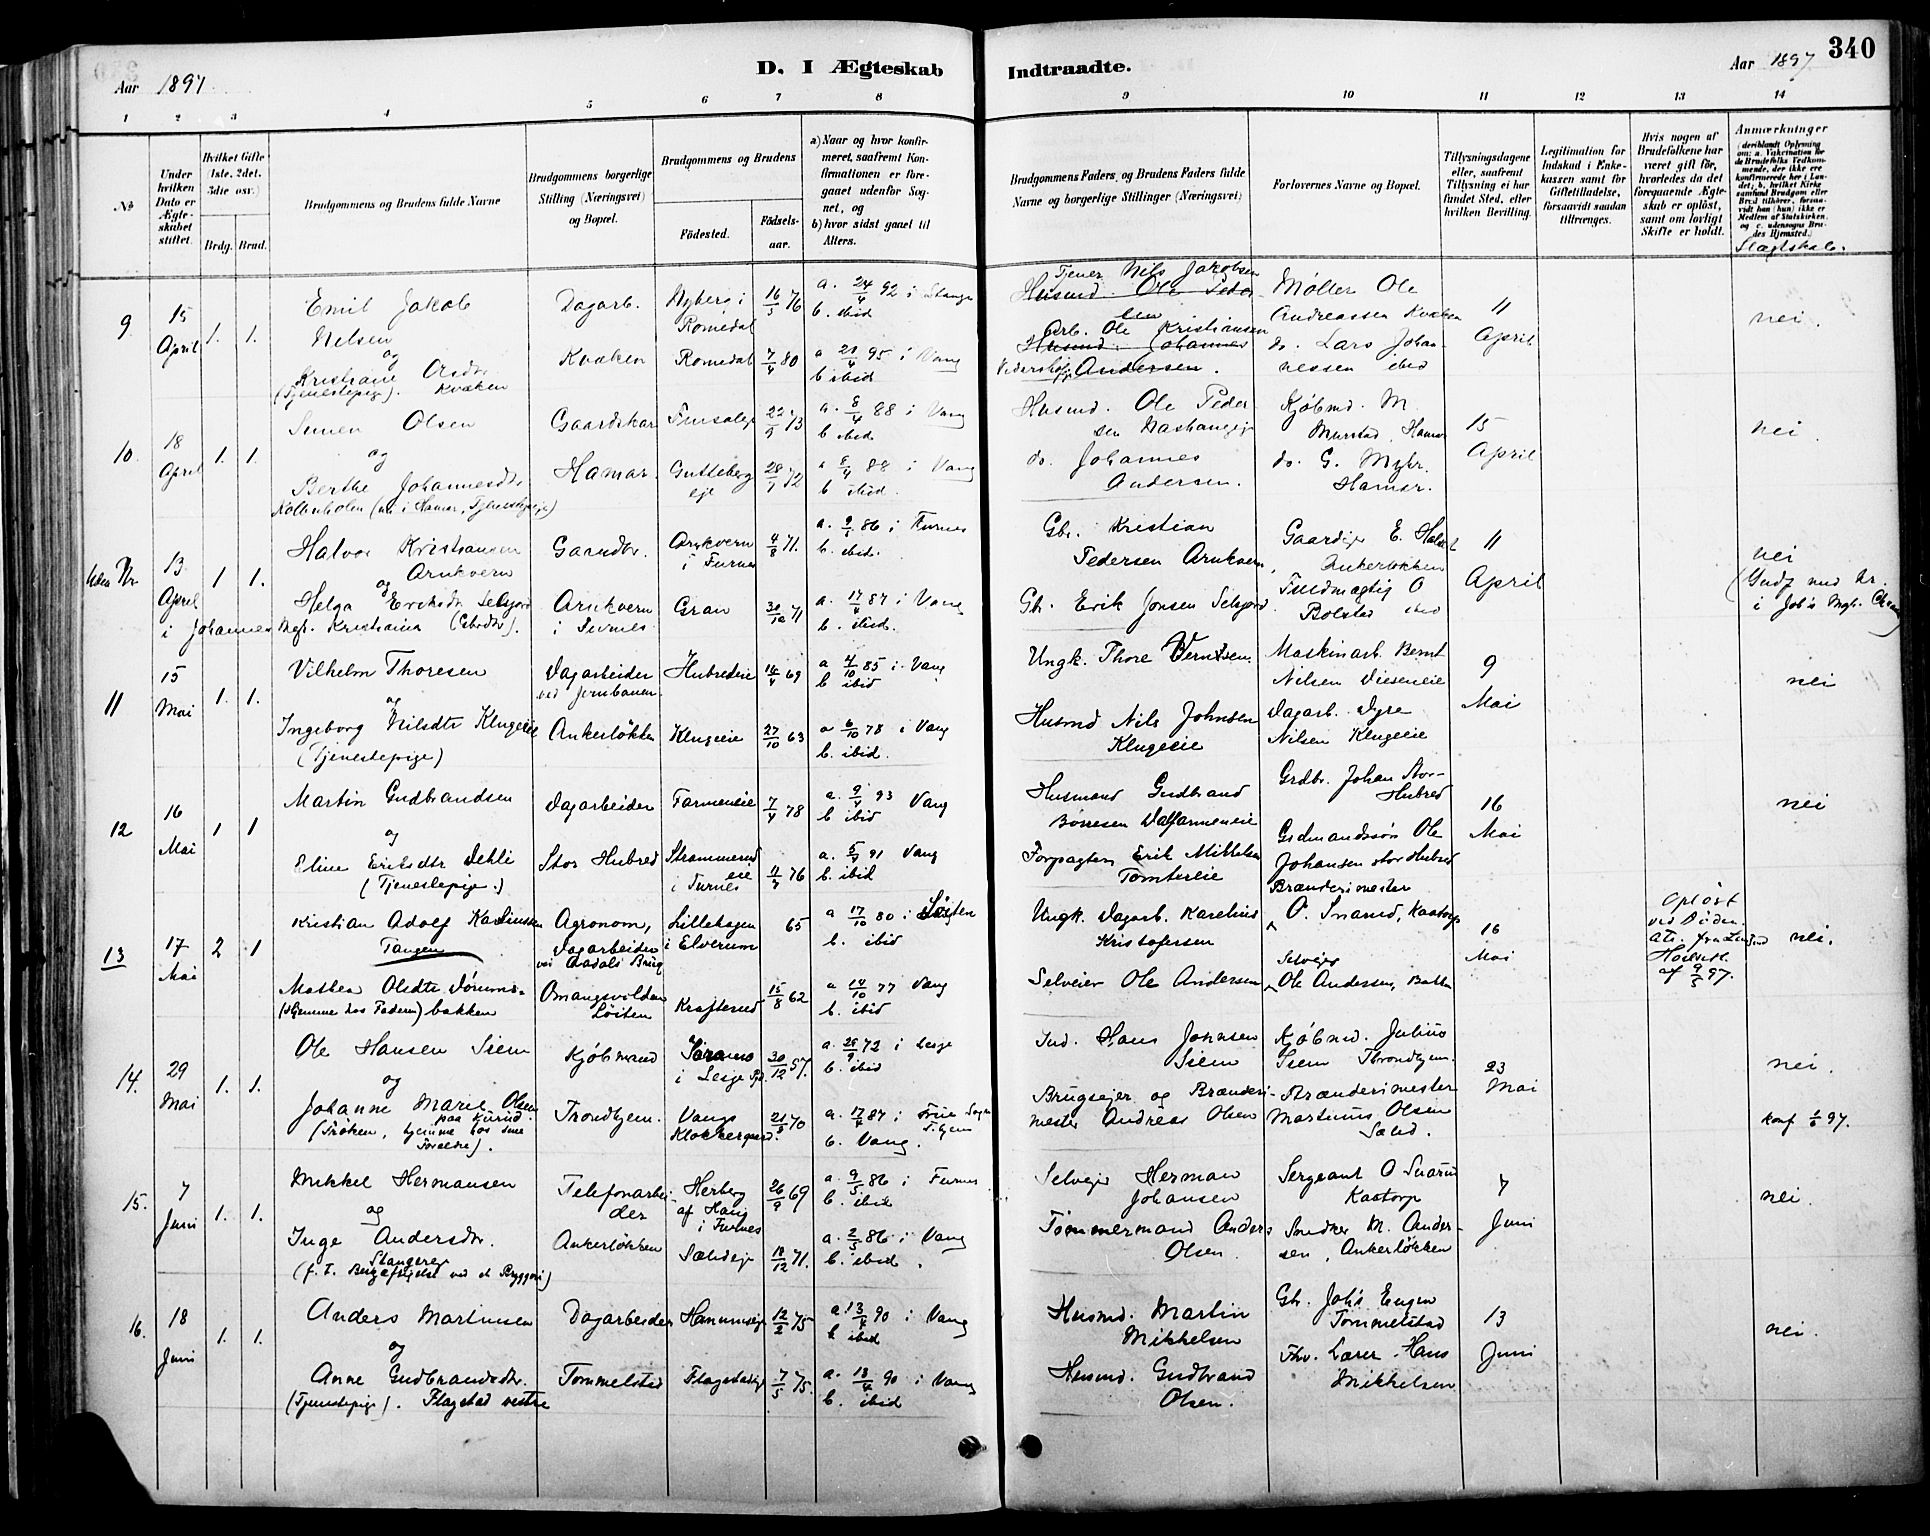 Aar 1897
D. I Ægteskab
Indtraadte.
Aar 1897
340
1 2 3 4 5 6 7 8 9 10 11 12 13 14
No
Under hvilken Dato er Ægteskabet stiftet.
Hvilket Gifte (1ste, 2det, 3die osv.)
Brdg. Brud.
Brudgommens og Brudens fulde Navne
Brudgommens borgerlige Stilling (Næringsvei) og Bopæl.
Brudgommens og Brudens
Födested.
Födselsaar.
a) Naar og hvor konfirmeret, saafremt Konfirmationen er foregaaet udenför Sognet, og
b) hvor sidst gaaet til Alters.
Brudgommens Faders og Brudens Faders fulde Navne og borgerlige Stillinger (Næringsvei)
Forlovernes Navne og Bopæl.
Tillysningsdagene eller, saafremt Tillysning ei har fundet Sted, efter hvilken Bevilling.
Legitimation for Indskud i Enkekassen samt for Giftetilladelse, forsaavidt saadan tiltrænges.
Hvis nogen af Brudefolkene har været gift før, hvorledes da det foregaaende Ægteskab er oplöst, samt om lovligt Skifte er holdt.
Anmærkninger
Slægtskab.
9 15 April 1. 1.
Emil Jakob Nilsen
og
Kristiane Olsdtr.
(Tjenestepige). Kvæken
Dagarb.
Kvæken
Nyberg i Romedal 16/5 76
Romedal 7/4 80
a. 24/4 92 i Stange
b. ibid
a 21/4 95 i Vang
b ibid
Tjener Nils Jakobsen
Husmd. Ole Pedersen
Arb. Ole Kristiansen
Husmd. Johannes Andersen.
Møller Ole Andreassen Kvæken
do. Lars Johannessen ibid
11 April
nei.
10. 18 April 1. 1.
Simen Olsen
og
Berthe Johannesdtr
Gaardskar
Hamar.
22/9 73
Gutteberg eje 28/7 72
a. 8/4 88 i Vang
b ibid.
a 8/4 88 i Vang
b. ibid.
Husmd. Ole Pedersen
do. Johannes Andersen.
Kjøbmd. M. Murstad, Hamar
do. G. Myhr. Hamar.
15 April
nei.
Uden Nr. 13 April 1 1.
i Johannes Mgh. Kristiania
Halvor Kristiansen Arnkvern
og
Helga Eriksdtr Selsjord
Gaardbr.
Arnkvern i Furnes
Arnkvern i Furnes 4/8 71.
Gran 30/12 71
a. 86 i Furnes
b. ibid.
a. 17/4 87 i Vang
b. ibid.
Gbr. Kristian Pedersen Arnkvern
Gb. Erik Jonsen Selsjord
Gaardejer E. Ankerløkken
Fuldmægtig O Bolstad ibid
11 April
nei
11 15 Mai 1. 1.
Vilhelm Thoresen
og
Ingeborg Nilsdtr Klugeeie
(Tjenestepige)
Dagarbeider ved Jernbanen
Ankerløkken
Hubredeie 16/4 69
Klugeeie 27/10 63
a 4/10 85 i Vang
b ibid
a 6/10 78 i Vang
b. ibid.
Ungk. Thore Berntsen
Husmd Nils Johnsen Klugeeie
Maskinarb. Bernt Nilsen Vieseneie
Dagarb. Dyre Nilsen Klugeeie
9 Mai
nei
12 16 Mai 1 1
Martin Gudbrandsen
og
Eline Eriksdtr Dehli
(Tjenestepige.)
Dagarbeider
Stor Hubred
Farmeneie 7/4 78
Strammerud eie i Furnes 11/7 76
a. 9/4 93 Vang
b ibid
a. 5/4 91 Vang
b. ibid
Husmand Gudbrand Børresen Dalfarmeneie
Forpagter Erik Mikkelsen Tomtereie
Grdbr. Johan Stor-Hubred
Gudmandssøn Ole Johansen stor Hubred
16 Mai
nei
13 17 Mai 2 1
Kristian Adolf Karelinssen Tangen
Mathea Olsdtr Dørumsbakken
(Hjemme hos Faderen)
Agronom, Dagarbeider ved Aadals Brug
Omangsvilden Løiten
Lillehagen i Elverum 65
Kraftsrud 15/8 62
a 17/10 80 i Løiten
b. ibid
a 14/10 77 Vang
b. ibid
Ungk. Dagarb. Karelius Kristofersen
Selveier Ole Andersen
Brænderimester O. Snarud, Kaatorp
Selveier Ole Andersen, Bakken
16 Mai
Opløst ved Døden
af 9/5 97.
nei.
14. 29 Mai 1. 1.
Ole Hansen Siem
og
Johanne Marie Olsen
paa Kjerud.
(Frøken, hjemme hos sine Foreldre).
Kjøbmand
Trondhjem.
i Lesje Pgd. 30/12 57.
Vangs Klokkergaard. 21/8 70
a. 25/9 72 i Lesje
b. ibid
a. 17/4 87 i Frue Sogn T.hjem
b. Vang.
Ind. Hans Johnsen Siem
Brugsejer og Brænderimester Andreas Olsen
Kjøbmd. Julius Siem Throndhjem.
Brænderimester Martinus Olsen Sælid.
23 Mai
nei.
konf 1/6 97.
15. 7 Juni 1. 1.
Mikkel Hermansen
og
Inge Andersdtr. Stangereje
Telefonarbeider
Ankerløkken
Herberg af Haug i Furnes 26/9 69
Sælideje 10/12 71.
a. 9/5 86 i Furnes
b. ibid.
a. 2/5 86 i Vang
b. ibid.
Selvejer Herman Johansen
Tømmermand Anders Olsen.
Sergeant O Snarud Kaatorp
Snedker M. Andersen, Ankerløkken
7 Juni
nei.
16. 18 Juni 1. 1.
Anders Martinsen
og
Anne Gudbrandsdtr.
(Tjenestepige). Flagstad vestre
Dagarbeider
Tommelstad
12/2 75
Flagstadeje 7/5 75.
a. 13/4 90 i Vang
b ibid
a. 13/4 90 i Vang
b. ibid
Husmd. Martin Mikkelsen
Husmd. Gudbrand Olsen.
Gbr. Johs Engen Tommelstad
Fhv. Lærer Hans Mikkelsen
13 Juni
nei.